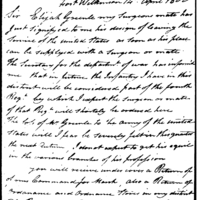 Fort Wilkinson 14. April 1802
Sir Elijah Griswold my Surgeons mate has
Just signified to me his design of leaving the
Service of the united States as soon as his place
can be supplyed with a Surgeon or mate
the Secretary for the department of war has informed
me that in future the Infantry I have in this
district will be considered part of the fourth
Regt by which I expect the Surgeon or mate
of that Regt will shortly be ordered here
The loss of Mr to the army of the united
States will I fear be severely felt in this quarter
the next , I cannot expect to get his equal
in the various branches of his profession
you will receive under cover a Return of
Command for March, also a Return of
ordnance and ordnance Stores in my